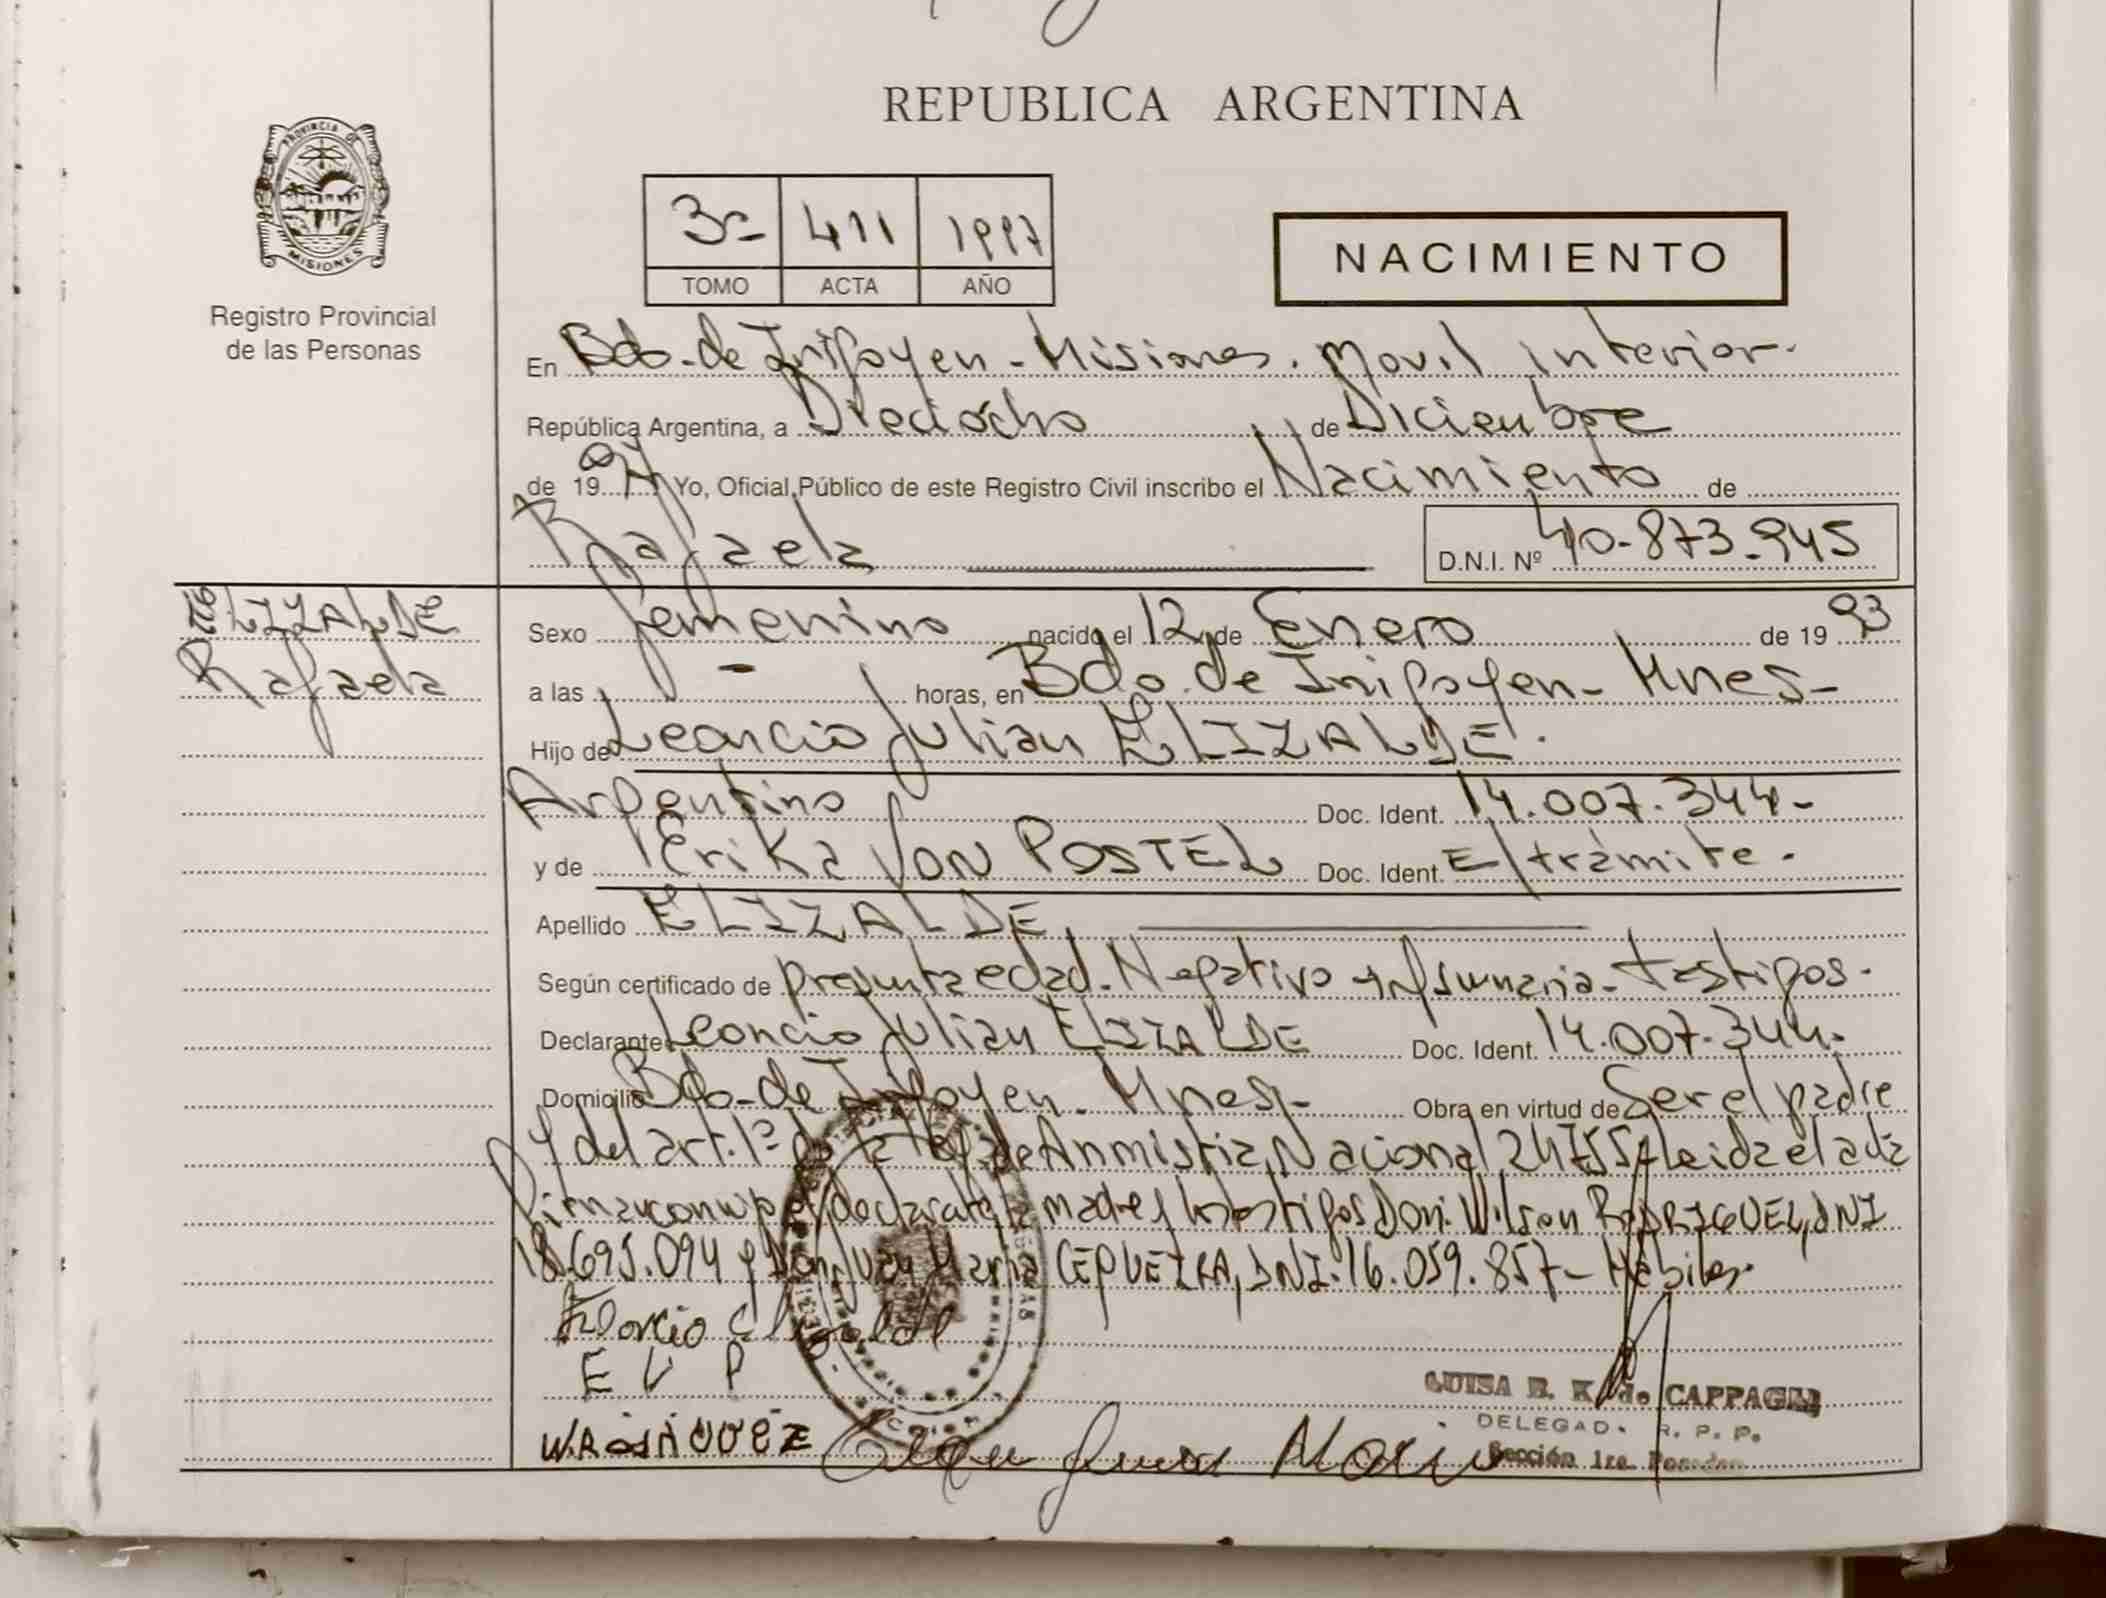 REPUBLICA ARGENTINA
PROVINCIA DE
MISIONES
Registro Provincial
de las Personas
3º 411 1997
TOMO ACTA AÑO
NACIMIENTO
En Bdo. de Irigoyen - Misiones. Movil interior.
República Argentina, a Dieciocho de Diciembre
de 1997 Yo, Oficial Público de este Registro Civil inscribo el Nacimiento de
Rafaela D.N.I. Nº 40.873.945
ELIZALDE
Rafaela
Sexo femenino nacido el 12 de Enero de 1993
a las - horas, en Bdo. de Irigoyen - Mnes -
Hijo de Leoncio Julian ELIZALDE.
Argentino Doc. Ident. 14.007.344 -
y de Erika VON POSTEL Doc. Ident. E/trámite.
Apellido ELIZALDE
Según certificado de presunta edad - Negativo - testigos.
Declarante Leoncio Julian ELIZALDE Doc. Ident. 14.007.344.
Domicilio Bdo. de Irigoyen - Mnes - Obra en virtud de Ser el padre
y del art. 1º de la ley de Anmistia Nacional 24755. Leida el acta
firman conmigo el declarante, la madre y los testigos Don: Wilson RODRIGUEZ, DNI
18.695.094 y Don Juan Maria CEQUEIRA, DNI. 16.059.857 - Hábiles.
E V P
LUISA E. K. de CAPPAGLI
DELEGADA R. P. P.
W. RODRIGUEZ
Sección 1ra. Posadas